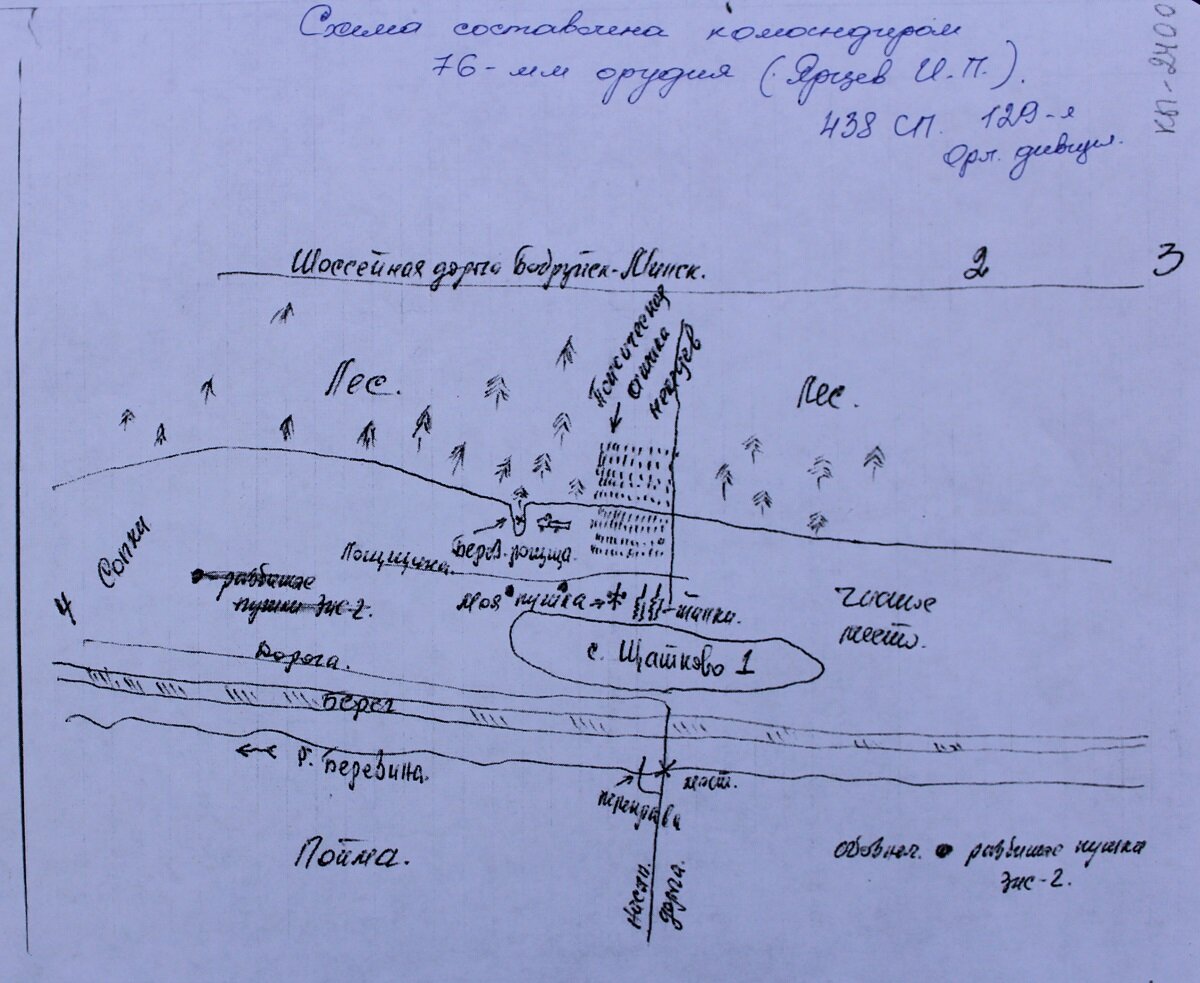 Схема составлена командиром
76-мм орудия (Ярцев И.П.).
438 СП. 129-я
Орл. дивизия.
КП-2400
Шоссейная дорога Бобруйск-Минск.
2
3
Психическая
атака
немцев
Лес.
Лес.
Сопки
4
Берёз. роща.
Лощина.
разбитые
пушки Зис-2.
Моя пушка
танки.
Чистое
место.
с. Щатково 1
Дорога.
Берег
р. Березина.
переправа
мост.
Пойма.
Насып.
дорога.
Обознач. разбитые пушка
Зис-2.